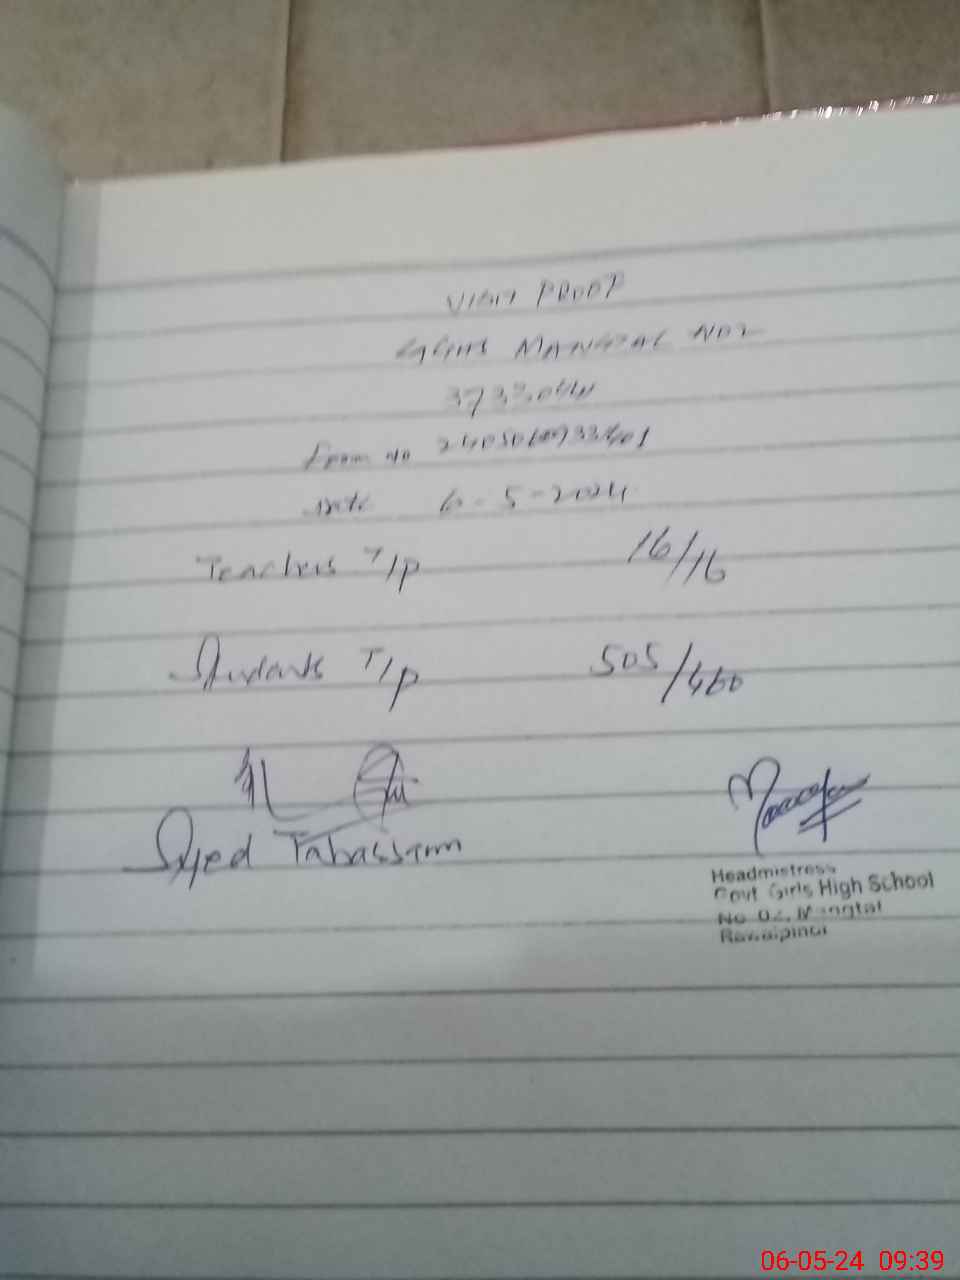 VISIT PROOF
GGHS MANGTAL NO2
Form No
Date 6-5-2024
Teachers T/P 16/16
Students T/P 505/460
Syed Tabassam
Headmistress
Govt Girls High School
No 02, Mangtal
Rawalpindi
06-05-24 09:39